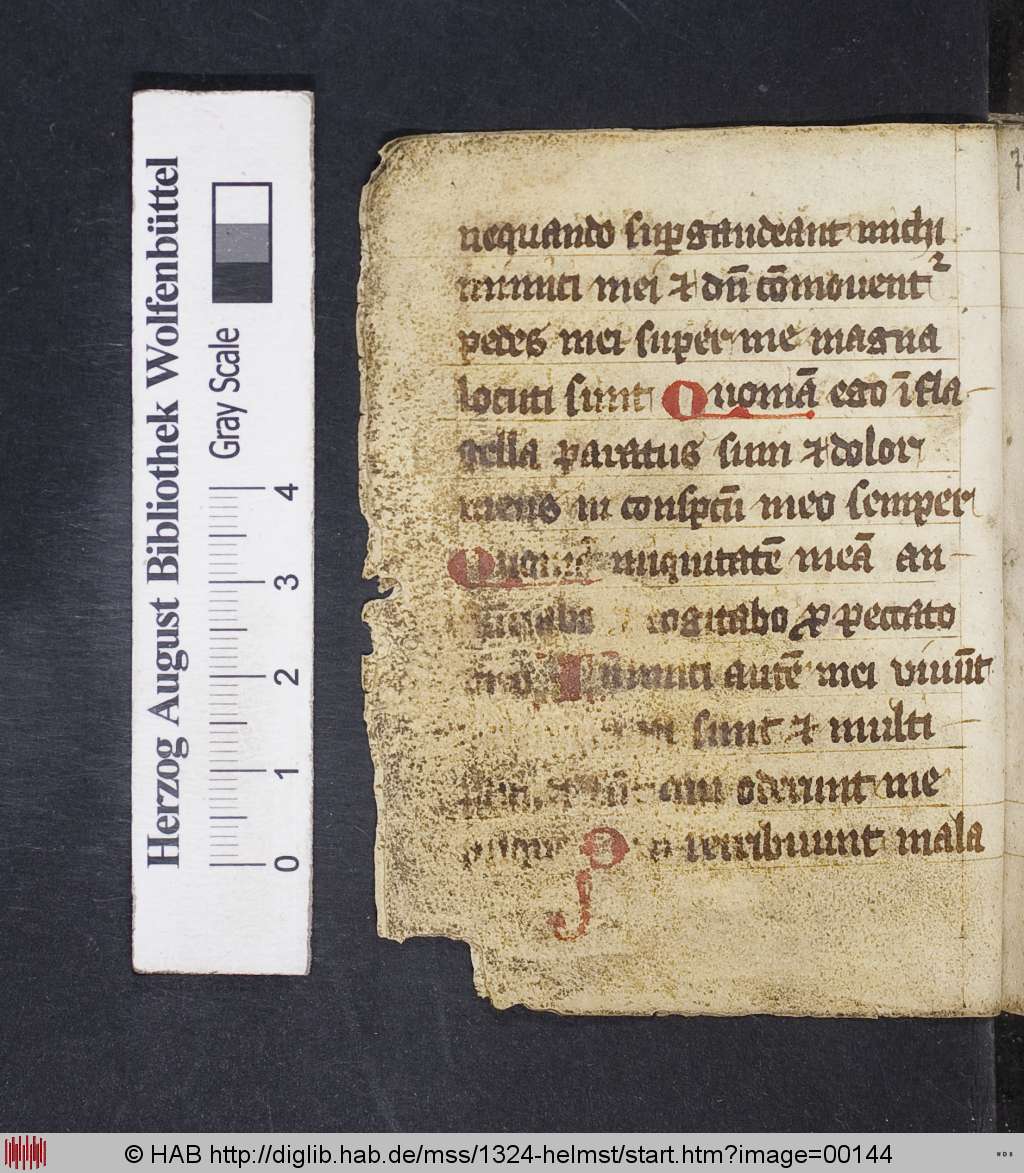 Herzog August Bibliothek Wolfenbüttel
Gray Scale
4
3
2
1
0
nequando sup̱gaudeant michi
inimici mei ⁊ dū̄ cōmouentᷣ
pedes mei super me magna
locuti sunt Quoniā ego ī fla
gella paratus sum ⁊ dolor
meus in consp̱cū meo semper
iniquitatē meā an
cogitabo ꝓ peccato
Inimici autē mei viuūt
sunt ⁊ multi
qui oderunt me
retribuunt mala
© HAB http://diglib.hab.de/mss/1324-helmst/start.htm?image=00144